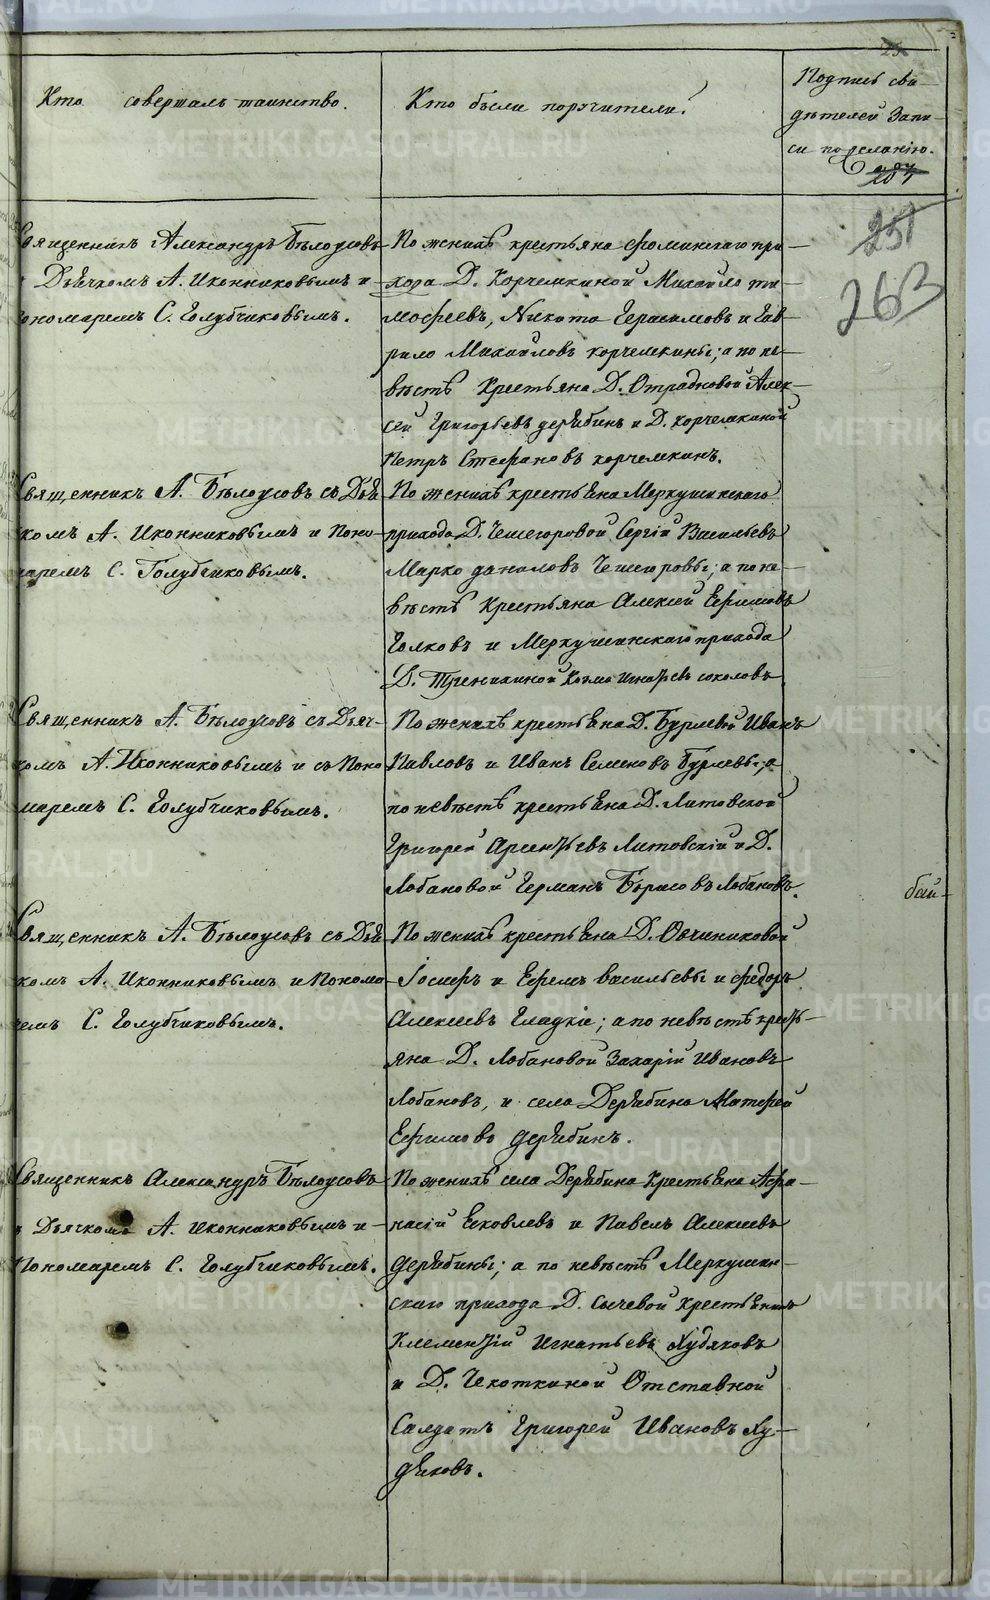 Кто совершалъ таинство.
Кто были поручители.
Подпись сви-
дѣтелей запи-
си по желанію.
287
251
263
Священникъ Александръ Бѣлоусовъ
Дьячкомъ А. Иконниковымъ и
пономаремъ С. Голубчиковымъ.
По женихѣ крестьяна Фоминскаго при-
хода Д. Корчемкиной Михайло Ти-
мофеевъ, Никита Герасимовъ и Гав-
рило Михайловъ Корчемкины; а по не-
вѣстѣ Крестьяна Д. Отрадновой Алек-
сей Григорьевъ Дерябинъ и Д. Корчемкиной
Петръ Стефановъ Корчемкинъ.
Священникъ А. Бѣлоусовъ съ Дья
комъ А. Иконниковымъ и Поно-
маремъ С. Голубчиковымъ.
По женихѣ крестьяна Меркушинскаго
прихода Д. Чешегоровой Сергій Васильевъ
Марко Даниловъ Чешегоровы; а по не-
вѣстѣ Крестьяна Алексей Ефимовъ
Голковъ и Меркушинскаго прихода
Д. Тренихиной Козма Игнатьевъ Соколовъ
Священникъ А. Бѣлоусовъ съ Дьяч-
комъ А. Иконниковымъ и съ Поно
маремъ С. Голубчиковымъ.
По женихѣ крестьяна Д. Бурлевой Иванъ
Павловъ и Иванъ Семеновъ Бурлевы; а
по невѣстѣ крестьяна Д. Литовской
Григорей Арсентьевъ Литовскій и Д.
Лобановой Германъ Борисовъ Лобановъ.
бай-
Священникъ А. Бѣлоусовъ съ Дья
комъ А. Иконниковымъ и Понома
ремъ С. Голубчиковымъ.
По женихѣ крестьяна Д. Овчиниковой
Іосифъ и Ефремъ Васильевы и Федоръ
Алексеевъ Гладкіе; а по невѣстѣ кресть-
яна Д. Лобановой Захарій Ивановъ
Лобановъ, и села Дерябина Матфей
Ефимовъ Дерябинъ.
Священникъ Александръ Бѣлоусовъ
съ Дьячкомъ А. Иконниковымъ и
Пономаремъ С. Голубчиковымъ.
По женихѣ села Дерябина Крестьяна Афа-
насій Яковлевъ и Павелъ Алексеевъ
Дерябины; а по невѣстѣ Меркушин-
скаго прихода Д. Сычевой крестьянинъ
Клементій Игнатьевъ Худяковъ
и Д. Чекоткиной Отставной
Салдатъ Григорей Ивановъ Ху-
дяковъ.